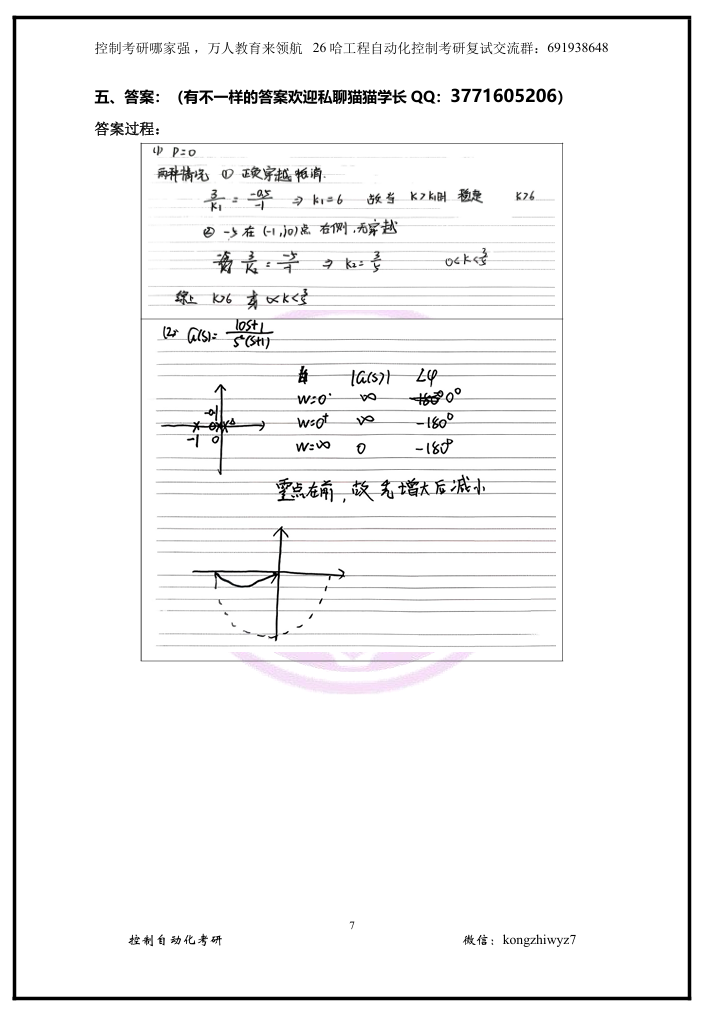 控制考研哪家强，万人教育来领航 26哈工程自动化控制考研复试交流群：691938648
五、答案：（有不一样的答案欢迎私聊猫猫学长 QQ：3771605206）
答案过程：
(1) P=0
两种情况 ① 正负穿越抵消.
3/K1 = -0.5/-1 ⇒ K1=6 故当 K>K1时 稳定 K>6
② -5 在 (-1,j0)点 右侧,无穿越
3/K2 = -5/-1 ⇒ K2=3/5 0<K<3/5
综上 K>6 或 0<K<3/5
(2) G(s)= 10s+1/s²(s+1)
|G(s)| ∠φ
W=0 ∞ 0°
W=0⁺ ∞ -180°
W=∞ 0 -180°
-0.1
-1 0
零点在前，故先增大后减小
7
控制自动化考研 微信：kongzhiwyz7